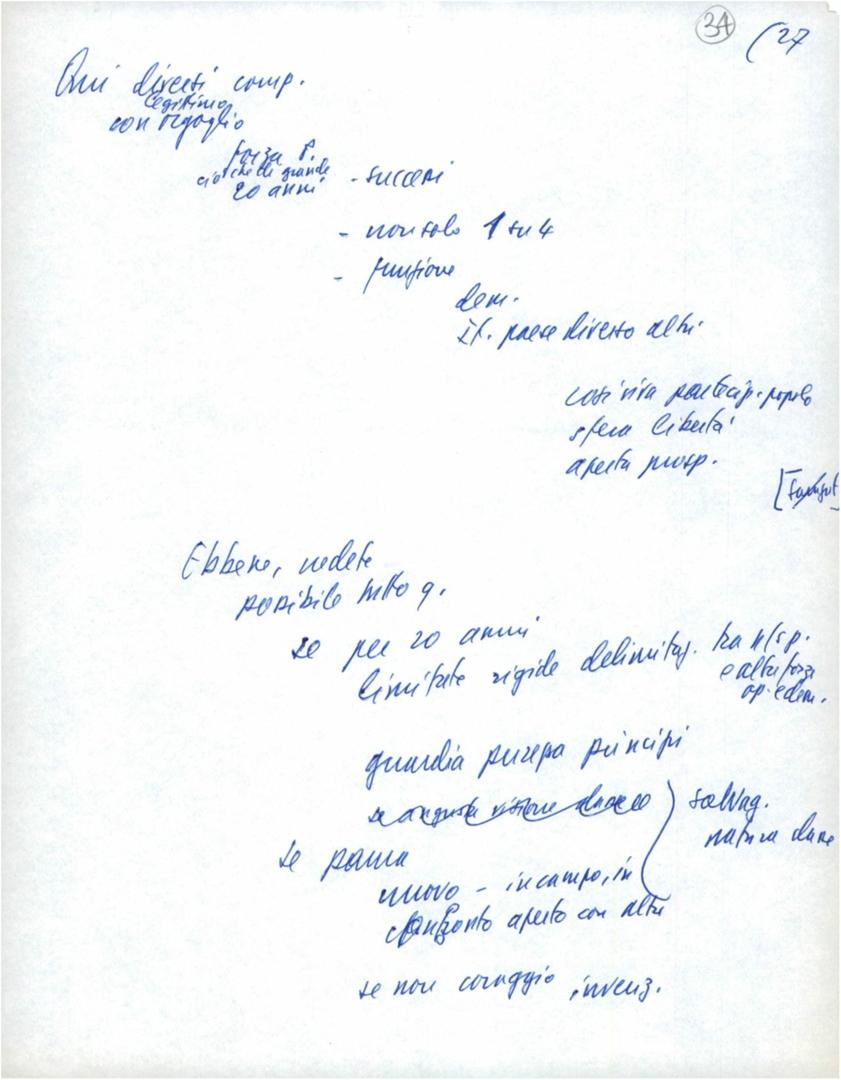 34
(27
Qui diversi comp.
legittimo
con orgoglio
forza P.
ciò che di grande
20 anni - successi
- non solo 1 su 4
- funzione
dem.
It. paese diverso altri
così viva partecip. popolo
sfera libertà
aperta prosp.
Ebbene, vedete
possibile tutto q.
se per 20 anni
limitate rigide delimitaz. tra n/s p.
e altri forze
op. e dem.
guardia purezza principi
se angusta visione
salvag.
natura classe
se paura
nuovo - in campo, in
confronto aperto con altri
se non coraggio invenz.